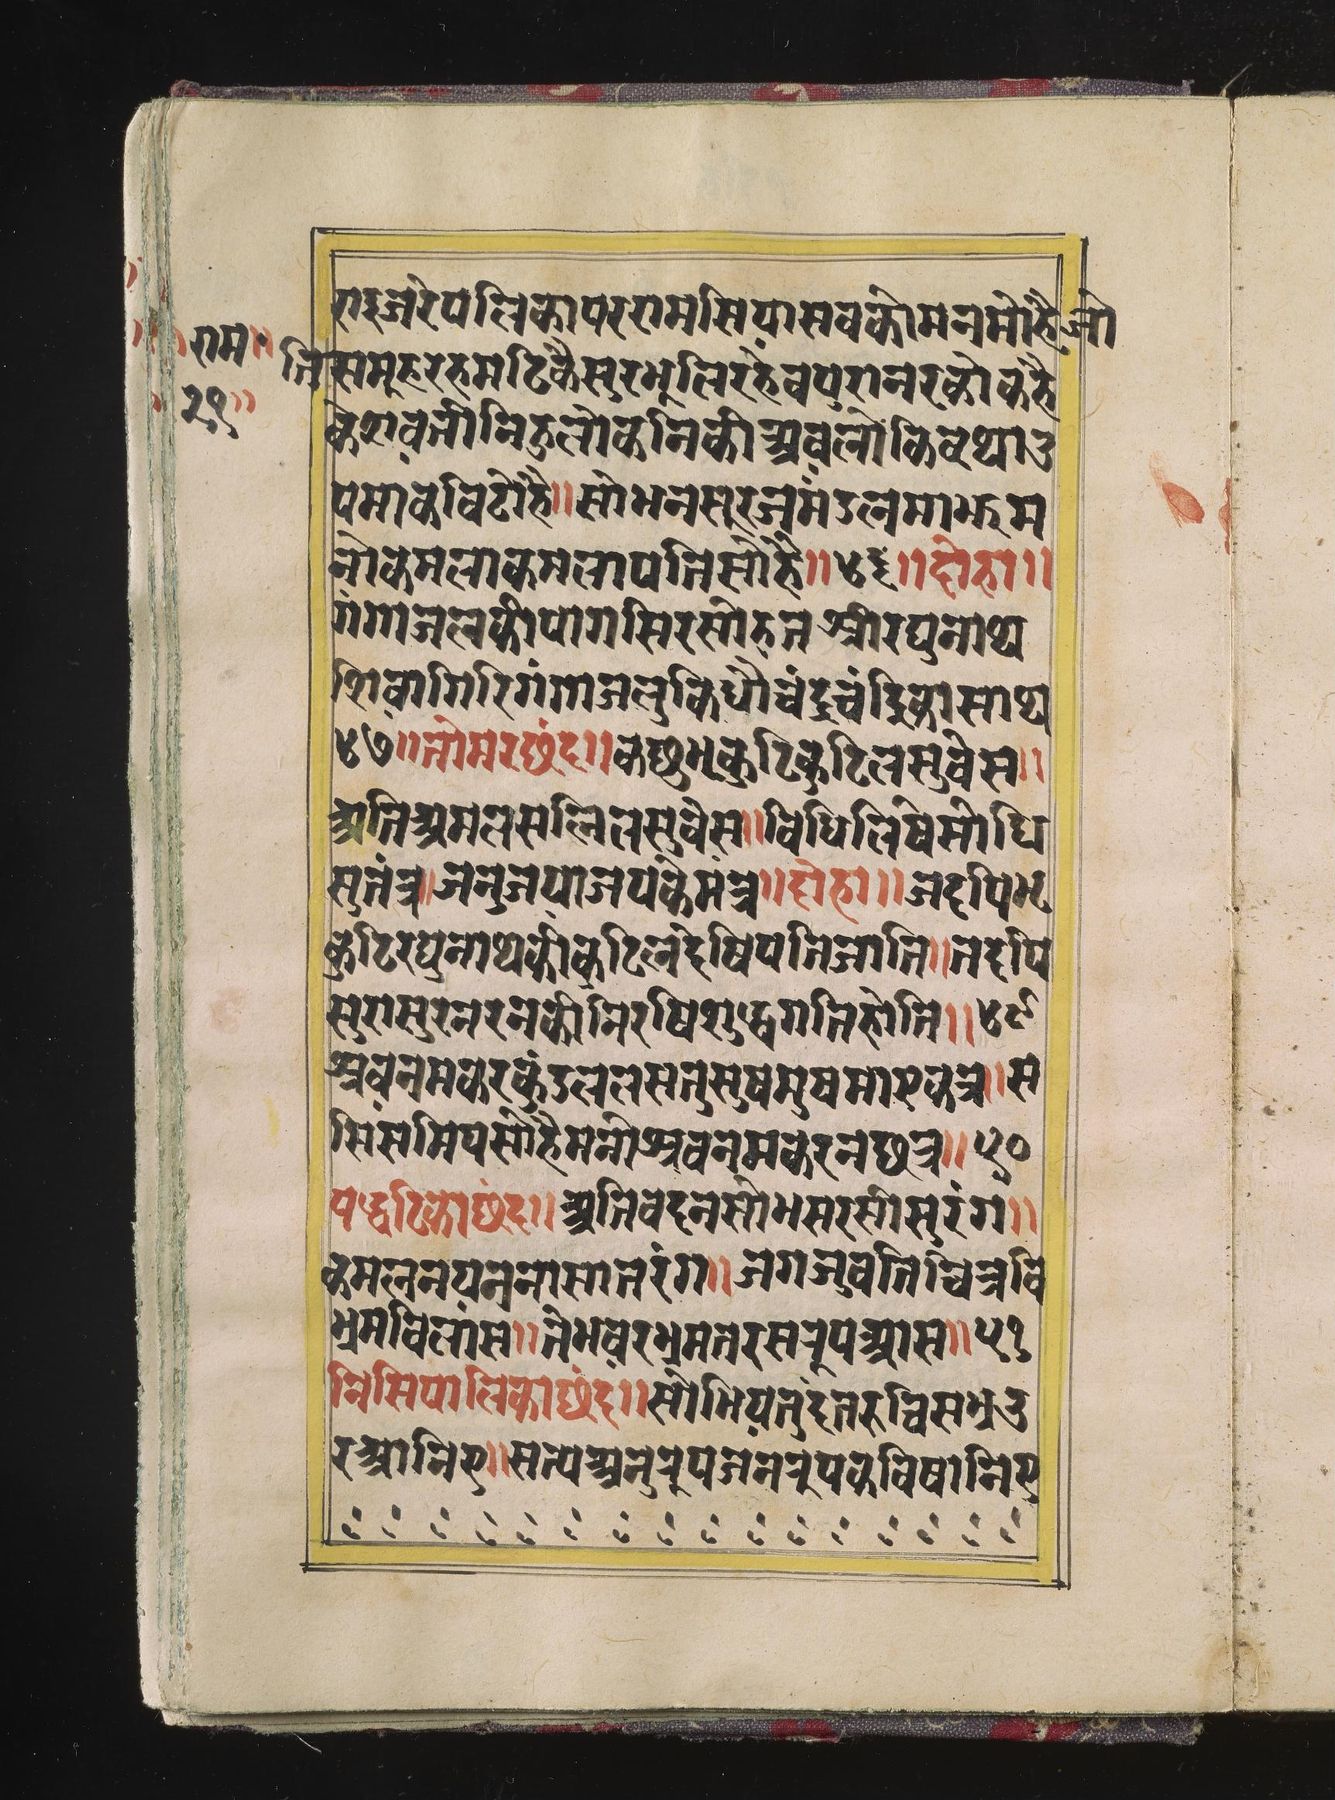 राइजरेपलिकापररामसियासबकोमनमोहैजो
॥राम॥ तिसमूहरहमटिकैसुरभूलिरहेबपुरानरकोकहै
२९॥ केशवतीनिहुलोकनिकीअवलोकिवृथाउ
पमाकविटोहै॥सोभनसूरजमंडलमाझम
नोकमलाकमलापतिसोहै॥४६॥दोहा॥
गंगाजलकीपागसिरसोहतश्रीरघुनाथ
शिवागिरिगंगाजलुकिधौचंदचंद्रिकासाथ
४७॥तोमरछंद॥कछुभृकुटिकुटिलसुवेस॥
अतिअमलसलिलसुवेस॥विधिलिषेसोधि
सुतंत्र॥जनुजयाजयकेमंत्र॥दोहा॥जदपिभृ
कुटिरघुनाथकीकुटिलदेषिपतिजोति॥तदपि
सुरासुरनरनकीनिरषिशुद्धगतिहोति॥४९
श्रवनमकरकुंडललसतुसुषमुषमाएकत्र॥स
सिसमिपसोहैमनोश्रवनमकरनछत्र॥५०
पद्धटिकाछंद॥अतिवदनसोभसरसीसुरंग॥
कमलनयननासातरंग॥जगजुवतिचित्रवि
भ्रमविलास॥तेभवरभ्रमतरसरूपआस॥५१
निसिपालिकाछंद॥सोभियतुदंतरुचिसभ्रउ
रआनिए॥सत्यअनुरूपजनरूपकविषानिए